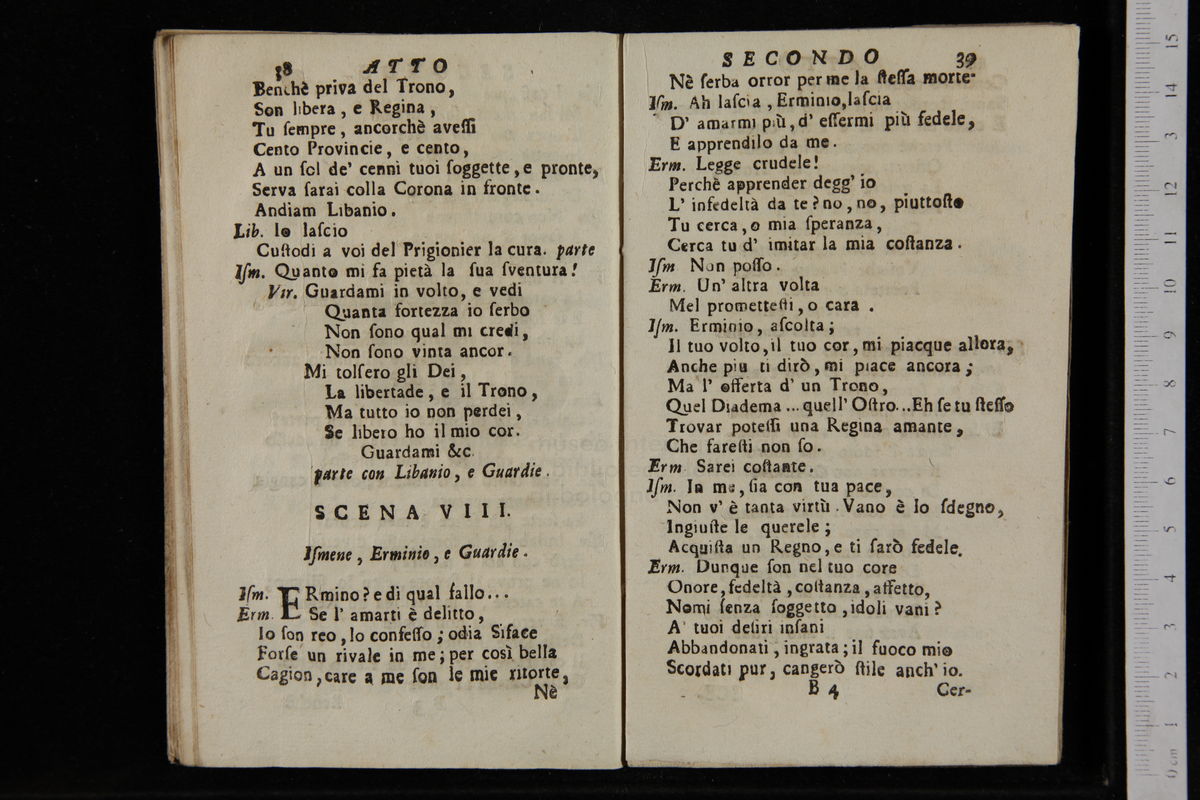 38 ATTO
Benchè priva del Trono,
Son libera, e Regina,
Tu ſempre, ancorchè aveſſi
Cento Provincie, e cento,
A un ſol de' cenni tuoi ſoggette, e pronte,
Serva ſarai colla Corona in fronte.
Andiam Libanio.
Lib. Io laſcio
Cuſtodi a voi del Prigionier la cura. parte
Iſm. Quanto mi fa pietà la ſua ſventura!
Vir. Guardami in volto, e vedi
Quanta fortezza io ſerbo
Non ſono qual mi credi,
Non ſono vinta ancor.
Mi tolſero gli Dei,
La libertade, e il Trono,
Ma tutto io non perdei,
Se libero ho il mio cor.
Guardami &c.
parte con Libanio, e Guardie.
SCENA VIII.
Iſmene, Erminio, e Guardie.
Iſm. ERmino? e di qual fallo...
Erm. Se l' amarti è delitto,
Io ſon reo, lo confeſſo; odia Siface
Forſe un rivale in me; per così bella
Cagion, care a me ſon le mie ritorte,
Nè
SECONDO 39
Nè ſerba orror per me la ſteſſa morte.
Iſm. Ah laſcia, Erminio, laſcia
D' amarmi più, d' eſſermi più fedele,
E apprendilo da me.
Erm. Legge crudele!
Perchè apprender degg' io
L' infedeltà da te? no, no, piuttoſto
Tu cerca, o mia ſperanza,
Cerca tu d' imitar la mia coſtanza.
Iſm Non poſſo.
Erm. Un' altra volta
Mel prometteſti, o cara.
Iſm. Erminio, aſcolta;
Il tuo volto, il tuo cor, mi piacque allora,
Anche piu ti dirò, mi piace ancora;
Ma l' offerta d' un Trono,
Quel Diadema... quell' Oſtro... Eh ſe tu ſteſſo
Trovar poteſſi una Regina amante,
Che fareſti non ſo.
Erm Sarei coſtante.
Iſm. In me, ſia con tua pace,
Non v' è tanta virtù. Vano è lo ſdegno,
Ingiuſte le querele;
Acquiſta un Regno, e ti ſarò fedele.
Erm. Dunque ſon nel tuo core
Onore, fedeltà, coſtanza, affetto,
Nomi ſenza ſoggetto, idoli vani?
A' tuoi deſiri inſani
Abbandonati, ingrata; il fuoco mio
Scordati pur, cangerò ſtile anch' io.
B 4 Cer-